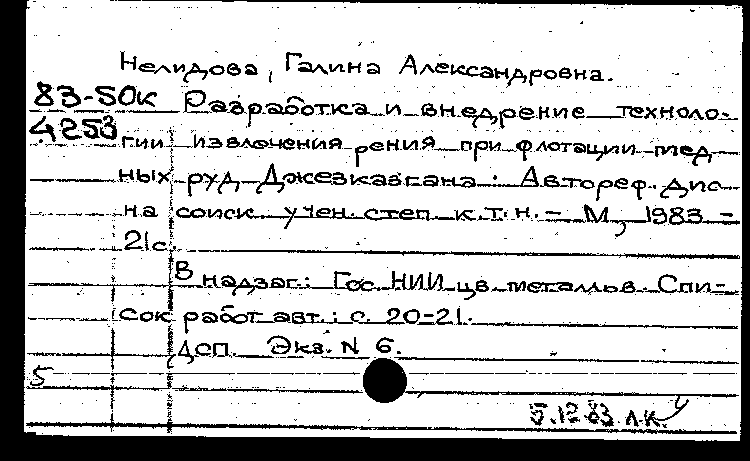 Нелидова, Галина Александровна.
83-50к Разработка и внедрение техноло-
4253 гии извлечения рения при флотации мед
ных руд Джезказгана: Автореф. дис
на соиск. учен. степ. к.т.н. - М, 1983 -
21с.
В надзаг.: Гос. НИИ цв. металлов. Спи-
сок работ авт.: с. 20-21.
ДСП. Экз. N 6.
5
5.12.83 Л.К.